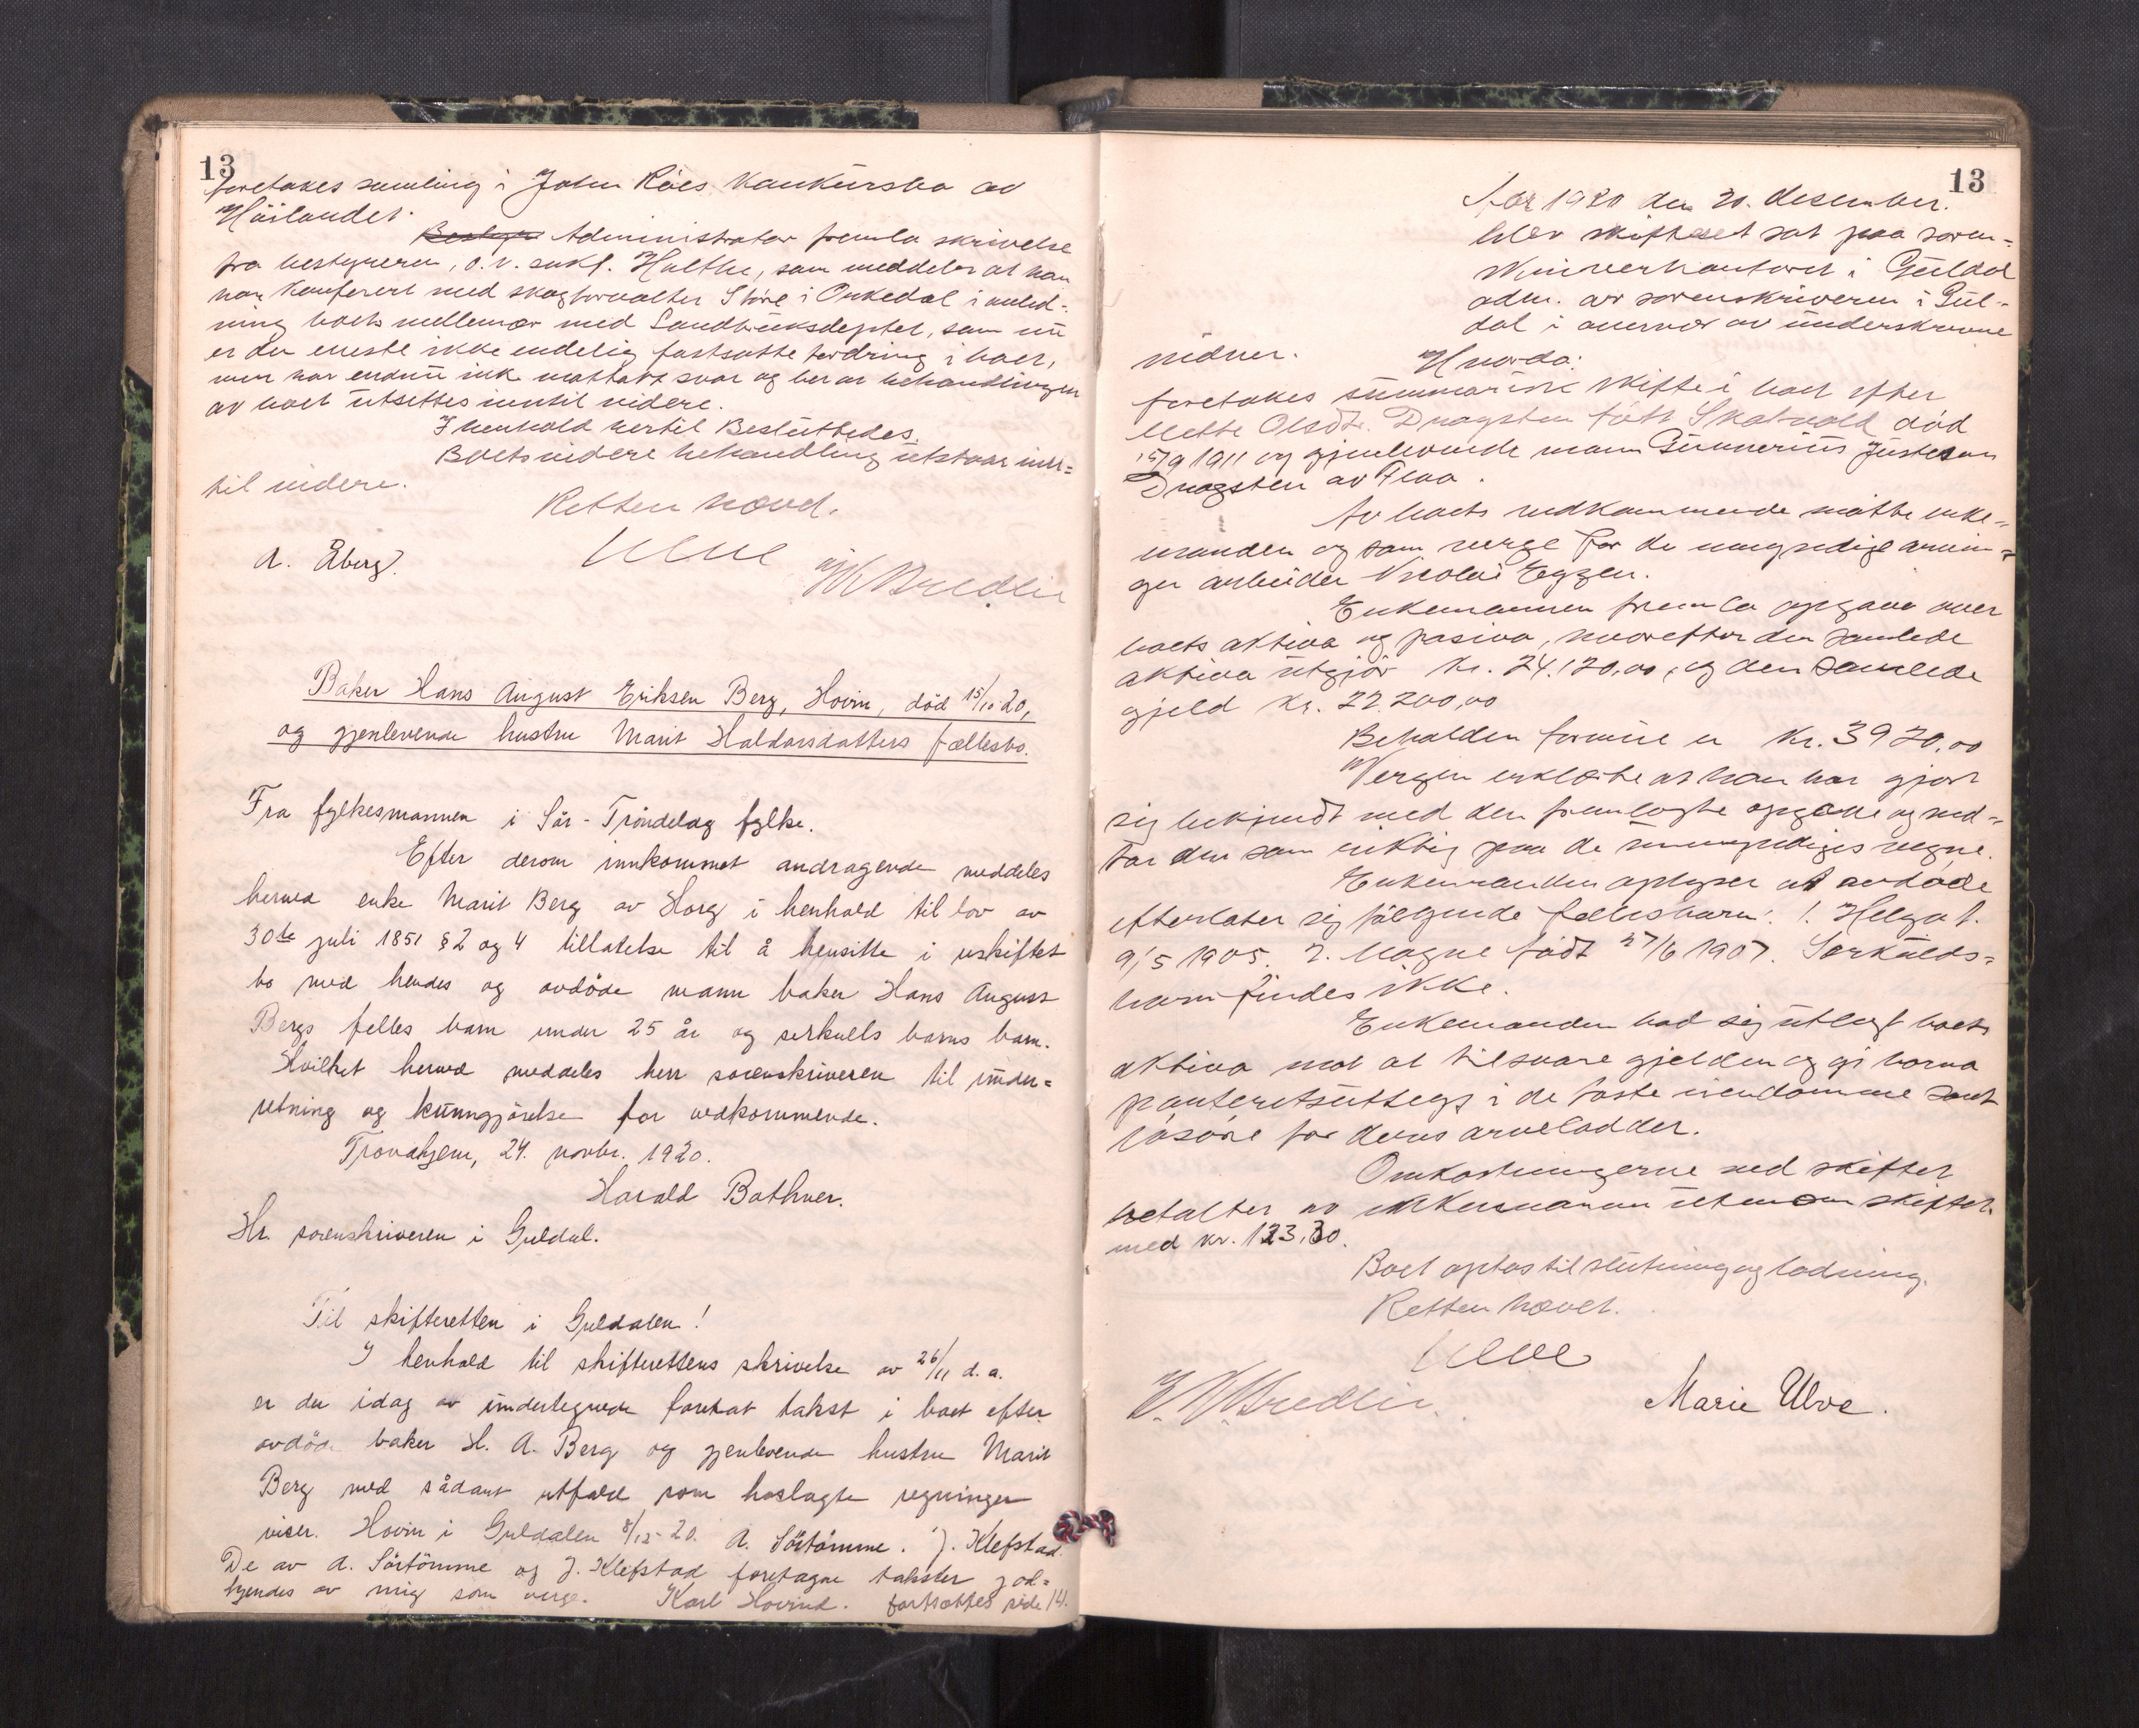 13
foretakes samling i John Röes konkursbo av
Höilandet.
Administrator fremla skrivelse
fra bestyreren, o.r. sakf. Holthe, som meddeler at han
har konferert med skogforvalter Störe i Orkedal i anled-
ning boets mellemvær med Landbruksdeptet, som nu
er den eneste ikke endelig fastsatte fordring i boet,
men har endnu ikke mottatt svar og ber at behandlingen
av boet utsettes inntil videre.
I henhold hertil Besluttedes.
Boets videre behandling utstaar inn-
til videre.
Retten hævd.
A. Åberg. Ulve
Baker Hans August Eriksen Berg, Hovin, död 15/10 20,
og gjenlevende hustru Marit Haldorsdatters fællesbo.
Fra fylkesmannen i Sör-Tröndelag fylke.
Efter derom innkommet andragende meddeles
herved enke Marit Berg av Horg i henhold til lov av
30te juli 1851 § 2 og 4 tillatelse til å hensitte i uskiftet
bo med hendes og avdöde mann baker Hans August
Bergs felles barn under 25 år og serkulls barns barn.
Hvilket herved meddeles herr sorenskriveren til under=
retning og kunngjörelse for vedkommende.
Trondhjem, 24. novbr. 1920.
Harald Bothner.
Hr. sorenskriveren i Guldal.
Til skifteretten i Guldalen!
I henhold til skifterettens skrivelse av 26/11 d.a.
er der idag av undertegnede foretat takst i boet efter
avdöde baker H. A. Berg og gjenlevende hustru Marit
Berg med sådant utfald som hoslagte regninger
viser. Hovin i Guldalen 8/12-20. A. Sörtömme. J. Klefstad.
De av A. Sörtömme og J. Klefstad foretagne takster god=
kjendes av mig som verge. Karl Hovind. fortsættes side 14.
13
Aar 1920 den 20. desember.
blev skifteret sat paa soren=
skriverkontoret i Guldal
adm. av sorenskriveren i Gul-
dal i overvær av underskrevne
vidner.
Hvorda:
foretakes summarisk skifte i boet efter
Mette Olsdtr. Dragsten född Skatvold död
15/9 1911 og gjenlevende mann Gunnerius Justesen
Dragsten av Flaa.
Av boets vedkommende mötte enke-
manden og som verge for de umyndige arvin=
ger arbeider Nicolai Eggen.
Enkemannen fremla opgave over
boets aktiva og pasiva, hvorefter den samlede
aktiva utgjör kr. 24.120,00, og den samlede
gjeld kr. 22.200,00
Behalden formue er kr. 3920,00
Vergen erklærte at han har gjort
sig bekjendt med den fremlagte opgave og ved-
tar den som riktig paa de umyndiges vegne.
Enkemanden oplyser at avdöde
efterlater sig fölgende fællesbarn: 1. Helga f.
9/5 1905. 2. Magne födt 27/6 1907. Særkulds=
barn findes ikke.
Enkemanden bad sig utlagt boets
aktiva mot at tilsvare gjelden og gi barna
panteretsutlegg i de faste eiendomme samt
lösöre for deres arvelodder.
Omkostningerne ved skiftet
betaltes av enkemannen utenom skiftet
med kr. 123,30.
Boet optas til slutning og lodning.
Retten hævet.
Ulve
Marie Ulve.